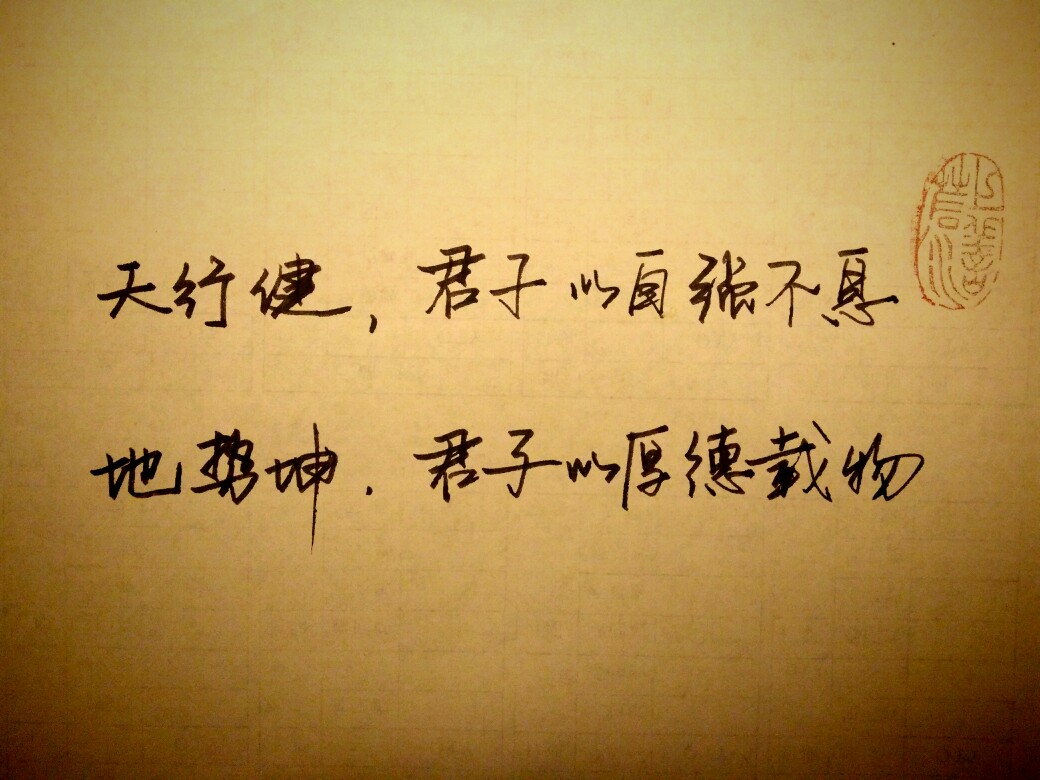 天行健，君子以自强不息
地势坤．君子以厚德载物